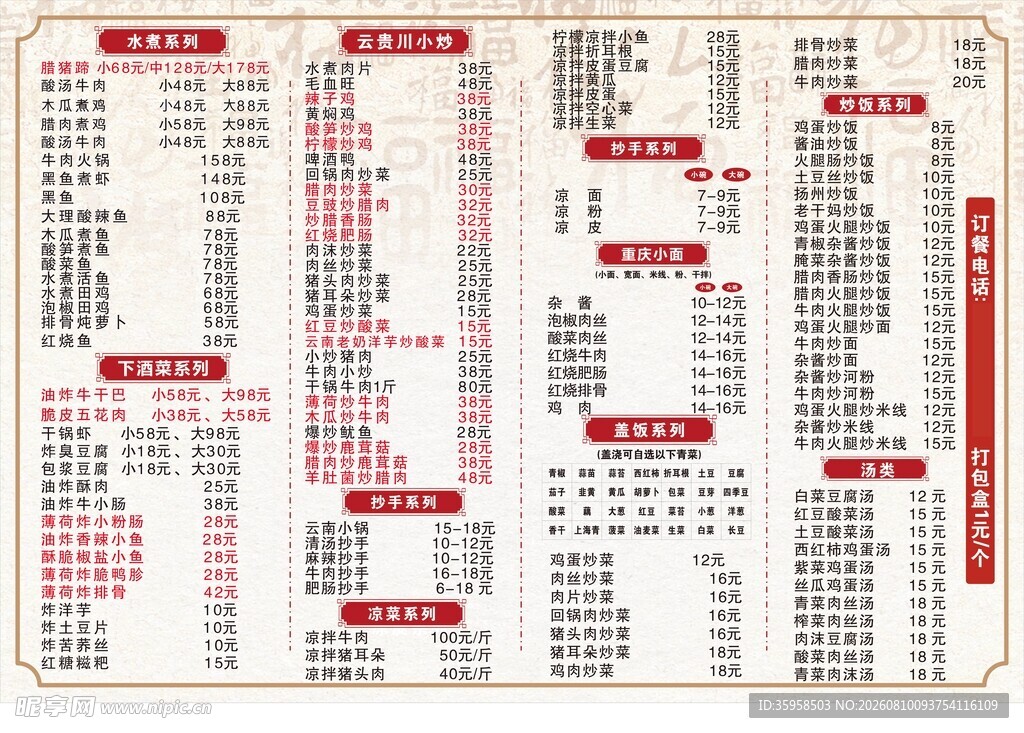 水煮系列
腊猪蹄 小68元/中128元/大178元
酸汤牛肉 小48元 大88元
木瓜煮鸡 小48元 大88元
腊肉煮鸡 小58元 大98元
酸汤牛肉 小48元 大88元
牛肉火锅 158元
黑鱼煮虾 148元
黑鱼 108元
大理酸辣鱼 88元
木瓜煮鱼 78元
酸笋煮鱼 78元
酸菜鱼 78元
水煮活鱼 78元
水煮田鸡 68元
泡椒田鸡 68元
排骨炖萝卜 58元
红烧鱼 38元
下酒菜系列
油炸牛干巴 小58元、大98元
脆皮五花肉 小38元、大58元
干锅虾 小58元、大98元
炸臭豆腐 小18元、大30元
包浆豆腐 小18元、大30元
油炸酥肉 25元
油炸牛小肠 38元
薄荷炸小粉肠 28元
油炸香辣小鱼 28元
酥脆椒盐小鱼 28元
薄荷炸脆鸭胗 28元
薄荷炸排骨 42元
炸洋芋 10元
炸土豆片 10元
炸苦荞丝 10元
红糖糍粑 15元
云贵川小炒
水煮肉片 38元
毛血旺 48元
辣子鸡 38元
黄焖鸡 38元
酸笋炒鸡 38元
柠檬炒鸡 38元
啤酒鸭 48元
回锅肉炒菜 25元
腊肉炒菜 30元
豆豉炒腊肉 32元
炒腊香肠 32元
红烧肥肠 32元
肉沫炒菜 22元
肉丝炒菜 25元
猪头肉炒菜 25元
猪耳朵炒菜 28元
鸡蛋炒菜 15元
红豆炒酸菜 15元
云南老奶洋芋炒酸菜 15元
小炒猪肉 25元
牛肉小炒 38元
干锅牛肉1斤 80元
薄荷炒牛肉 38元
木瓜炒牛肉 38元
爆炒鱿鱼 28元
爆炒鹿茸菇 28元
腊肉炒鹿茸菇 38元
羊肚菌炒腊肉 48元
抄手系列
云南小锅 15-18元
清汤抄手 10-12元
麻辣抄手 10-12元
牛肉抄手 16-18元
肥肠抄手 6-18 元
凉菜系列
凉拌牛肉 100元/斤
凉拌猪耳朵 50元/斤
凉拌猪头肉 40元/斤
柠檬凉拌小鱼 28元
凉拌折耳根 15元
凉拌皮蛋豆腐 15元
凉拌黄瓜 12元
凉拌皮蛋 15元
凉拌空心菜 12元
凉拌生菜 12元
抄手系列
小碗 大碗
凉 面 7-9元
凉 粉 7-9元
凉 皮 7-9元
重庆小面
(小面、宽面、米线、粉、干拌)
小碗 大碗
杂 酱 10-12元
泡椒肉丝 12-14元
酸菜肉丝 12-14元
红烧牛肉 14-16元
红烧肥肠 14-16元
红烧排骨 14-16元
鸡 肉 14-16元
盖饭系列
(盖浇可自选以下青菜)
青椒 蒜苗 蒜苔 西红柿 折耳根 土豆 豆腐
茄子 韭黄 黄瓜 胡萝卜 包菜 豆芽 四季豆
酸菜 藕 大葱 红豆 菜苔 小葱 洋葱
香干 上海青 菠菜 油麦菜 生菜 白菜 长豆
鸡蛋炒菜 12元
肉丝炒菜 16元
肉片炒菜 16元
回锅肉炒菜 16元
猪头肉炒菜 16元
猪耳朵炒菜 18元
鸡肉炒菜 18元
排骨炒菜 18元
腊肉炒菜 18元
牛肉炒菜 20元
炒饭系列
鸡蛋炒饭 8元
酱油炒饭 8元
火腿肠炒饭 8元
土豆丝炒饭 10元
扬州炒饭 10元
老干妈炒饭 10元
鸡蛋火腿炒饭 10元
青椒杂酱炒饭 12元
腌菜杂酱炒饭 12元
腊肉香肠炒饭 15元
腊肉火腿炒饭 15元
牛肉火腿炒饭 15元
鸡蛋火腿炒面 12元
牛肉炒面 15元
杂酱炒面 12元
杂酱炒河粉 12元
牛肉炒河粉 15元
鸡蛋火腿炒米线 12元
杂酱炒米线 12元
牛肉火腿炒米线 15元
汤类
白菜豆腐汤 12 元
红豆酸菜汤 15 元
土豆酸菜汤 15 元
西红柿鸡蛋汤 15 元
紫菜鸡蛋汤 15 元
丝瓜鸡蛋汤 15 元
青菜肉丝汤 18 元
榨菜肉丝汤 18 元
肉沫豆腐汤 18 元
酸菜肉丝汤 18 元
青菜肉沫汤 18 元
订餐电话:
打包盒1元/个
昵享网 www.nipic.cn
ID:35958503 NO:20260810093754116109